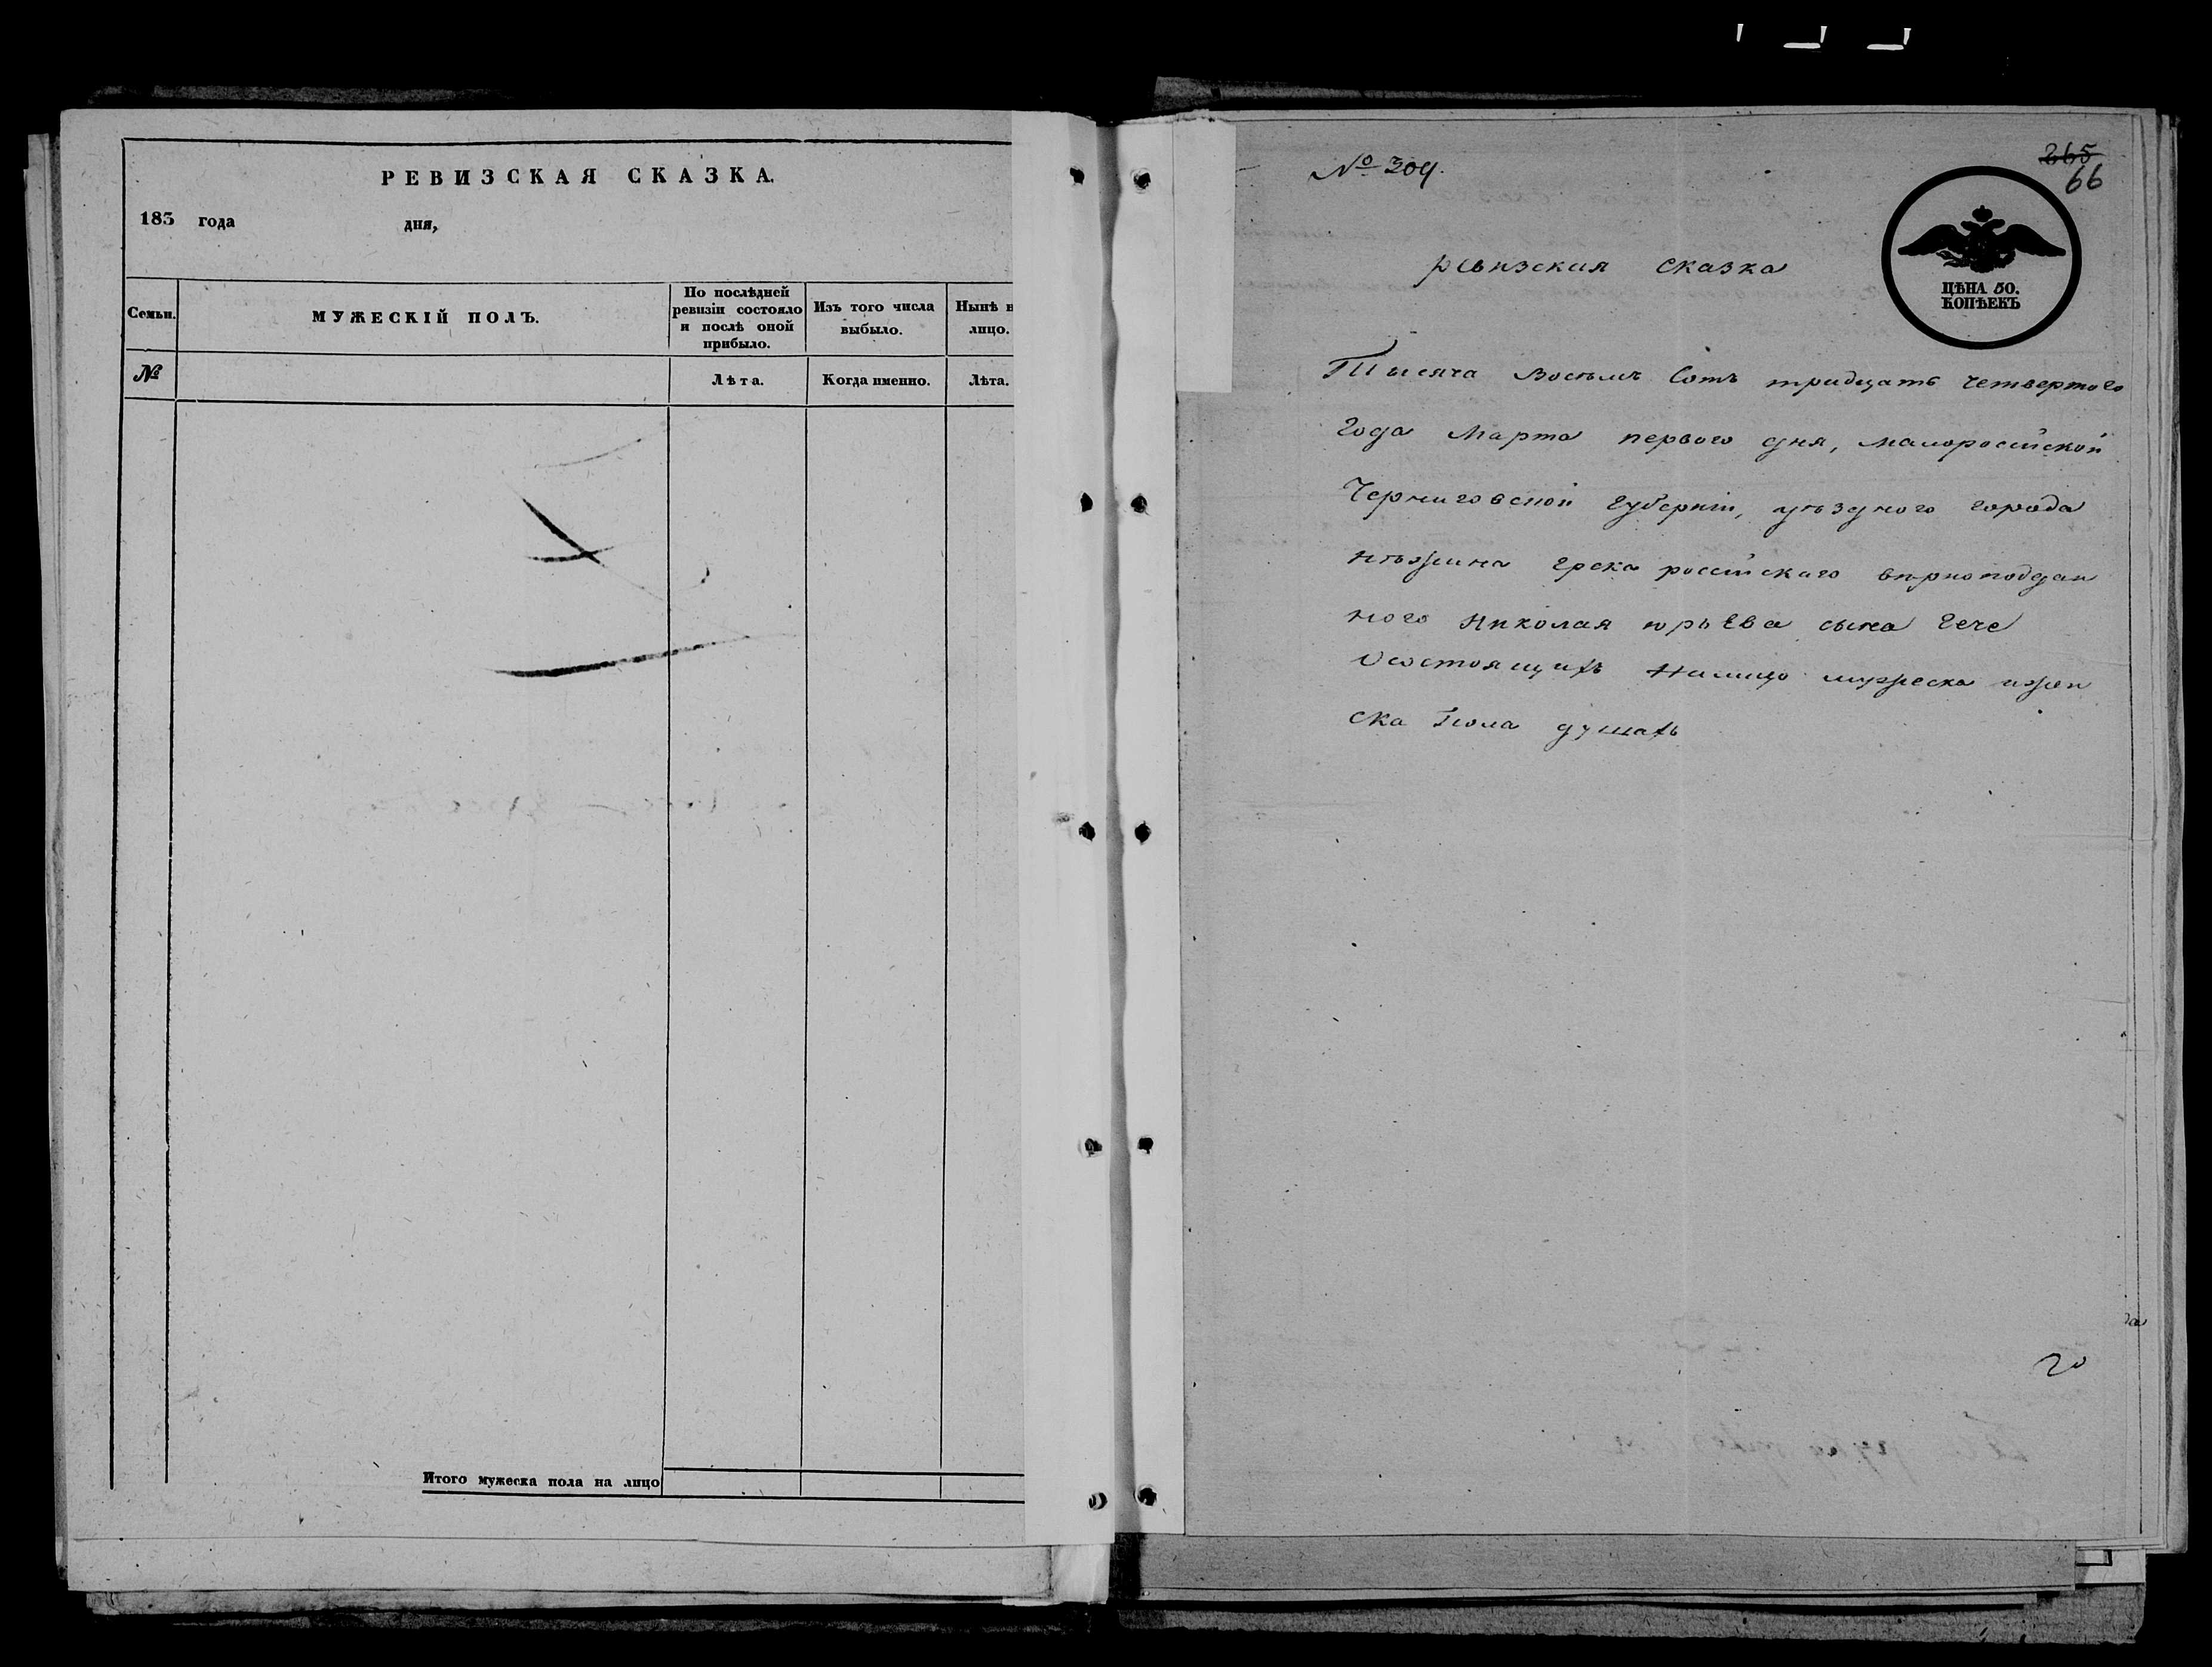 РЕВИЗСКАЯ СКАЗКА.
183 года дня,
Семьи.
МУЖЕСКІЙ ПОЛЪ.
По послѣдней
ревизіи состояло
и послѣ оной
прибыло.
Изъ того числа
выбыло.
Нынѣ н
лицо.
№
Лѣта.
Когда именно.
Лѣта.
Итого мужеска пола на лицо
№ 309.
265
66
ЦѢНА 50.
КОПѢЕКЪ
ревизская сказка
Тысяча Восемъ Сотъ тридцать четвертого
Года Марта первого дня, малоросійской
Черниговской Губерніи, уѣздного города
нѣжина грека россійскаго вѣрноподдан
ного Николая юрьева сына Гече
Осостоящихъ Налицо мужеска ижен
ска Пола душахъ
20